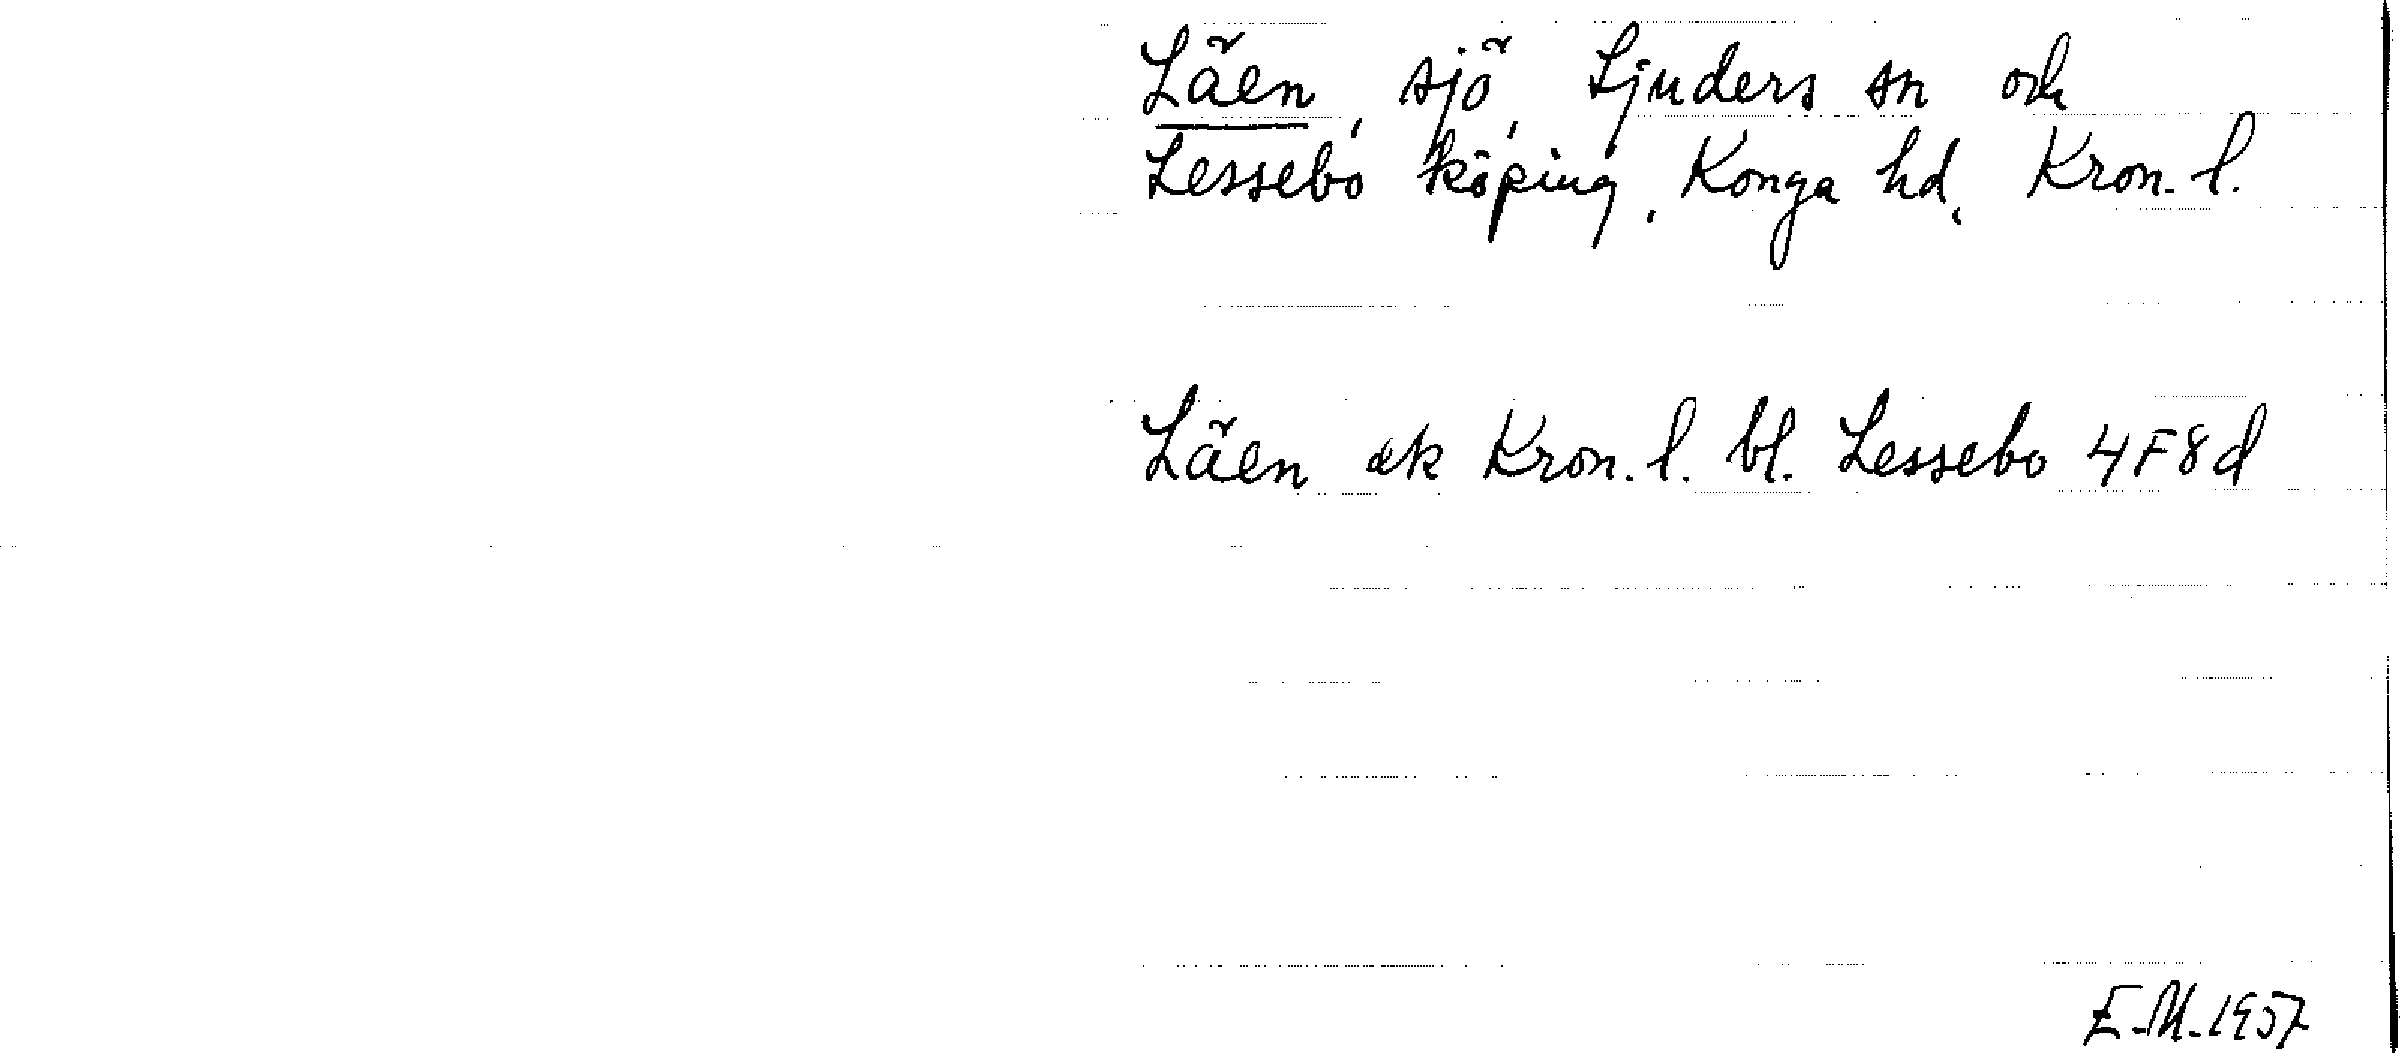 Läen, sjö, Ljuders sn och
Lessebo köping, Konga hd, Kron. l.
Läen ek Kron. l. bl. Lessebo 4F8d
E.M. 1957